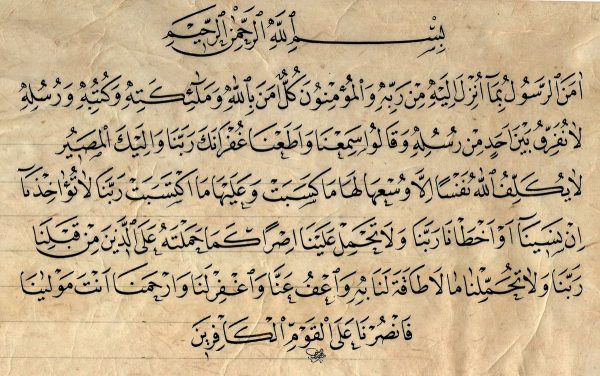 بِسْمِ اللهِ الرَّحْمٰنِ الرَّحِيمِ
اٰمَنَ الرَّسُولُ بِمَٓا اُنْزِلَ اِلَيْهِ مِنْ رَبِّهِ وَالْمُؤْمِنُونَ كُلٌّ اٰمَنَ بِاللهِ وَمَلٰٓئِكَتِهِ وَكُتُبِهِ وَرُسُلِهِ
لَا نُفَرِّقُ بَيْنَ اَحَدٍ مِنْ رُسُلِهِ وَقَالُوا سَمِعْنَا وَاَطَعْنَا غُفْرَانَكَ رَبَّنَا وَاِلَيْكَ الْمَصِيرُ
لَا يُكَلِّفُ اللهُ نَفْسًا اِلَّا وُسْعَهَا لَهَا مَا كَسَبَتْ وَعَلَيْهَا مَا اكْتَسَبَتْ رَبَّنَا لَا تُؤَاخِذْنَٓا
اِنْ نَسِينَٓا اَوْ اَخْطَأْنَا رَبَّنَا وَلَا تَحْمِلْ عَلَيْنَا اِصْرًا كَمَا حَمَلْتَهُ عَلَى الَّذِينَ مِنْ قَبْلِنَا
رَبَّنَا وَلَا تُحَمِّلْنَا مَا لَا طَاقَةَ لَنَا بِهِ وَاعْفُ عَنَّا وَاغْفِرْ لَنَا وَارْحَمْنَا اَنْتَ مَوْلٰينَا
فَانْصُرْنَا عَلَى الْقَوْمِ الْكَافِرِينَ